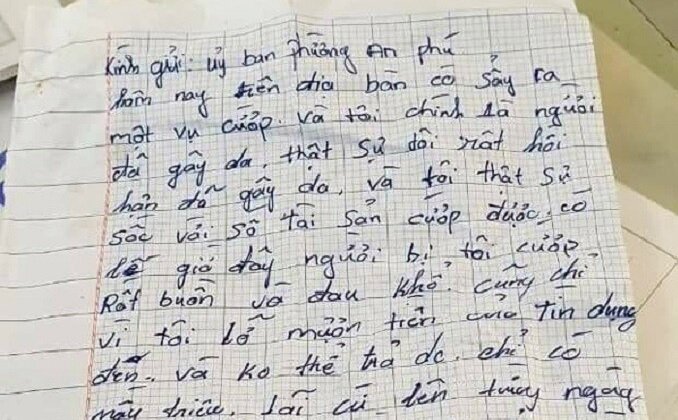 Kính gửi: Uỷ ban phường An phú
hôm nay trên địa bàn có sảy ra
một vụ cướp. và tôi chính là người
đã gây da. thật sự tôi rất hối
hận đã gây da. và tôi thật sự
sốc với số tài sản cướp được. có
lẽ giờ đây người bị tôi cướp
Rất buồn và đau khổ. cũng chỉ
vì tôi lỡ mượn tiền của Tín dụng
đen. và ko thể trả dc. chỉ có
mấy triệu. lãi cứ lên từng ngày